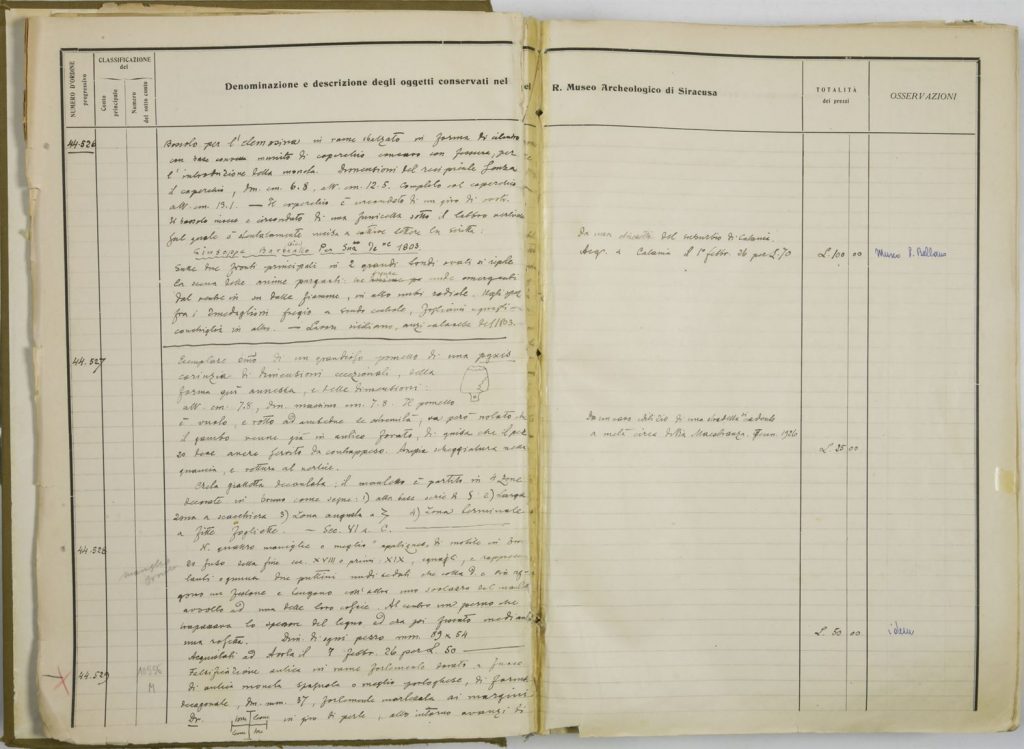 NUMERO D'ORDINE progressivo
CLASSIFICAZIONE del
Conto principale
Numero del sotto conto
Denominazione e descrizione degli oggetti conservati nel
nel R. Museo Archeologico di Siracusa
TOTALITÀ dei pezzi
OSSERVAZIONI
44.526
Bossolo per l'elemosina in rame sbalzato in forma di cilindro
con base munito di coperchio concavo con fessura, per
l'introduzione della moneta. Dimensioni del recipiente senza
il coperchio, dm. cm. 6.8, alt. cm. 12.5. Completo col coperchio
alt. cm. 13.1. — Il coperchio è circondato di un giro di
Il bossolo è circondato di una funicella sotto il labbro
sul quale è sbalzatamente incisa a lettere la scritta:
Giuseppe Per 1803.
Sulle due fronti principali in 2 grandi tondi ovali si ripete
la scena delle anime purganti: nude emergenti
dal ventre in su dalle fiamme, in alto nubi radiate. Negli spazi
fra i medaglioni fregio a fogliami
conchiglia in alto. — Lavoro siciliano, anzi del 1803.
Da una del suburbio di Catania.
Acq. a Catania il 1° febbr. 26 per L. 70
L. 100 00
Museo P. Bellomo
44.527
Esemplare di un grandioso pomello di una pyxis
corinzia di dimensioni eccezionali, della
forma qui annessa, e delle dimensioni:
alt. cm. 7.8, dm. massimo cm. 7.8. Il pomello
è vuoto, e rotto ad ambedue le estremità; va però notato che
il gambo venne già in antico forato, di guisa che il pez-
zo deve avere servito da contrappeso. Ampia scheggiatura nella
guancia, e rottura al vertice.
Creta giallotta decorata: il pomello è partito in 4 zone
decorate in bruno come segue: 1) alla base serie di S 2) larga
zona a scacchiera 3) zona angusta a Σ 4) zona terminale
a fitte fogliette. — Sec. VI a. C.
Da un caso edilizio di una stradella
a metà circa di Via Maestranza. Genn. 1926
L. 25 00
44.528
N. quattro maniglie o meglio "appliques" di mobile in bron-
zo fuso della fine sec. XVIII o primi XIX, eguali, e rappresen-
tanti ognuna due puttini nudi seduti che colla d. reg-
gono un festone e tengono coll'altra uno svolazzo del
avvolto ad una delle loro coscie. Al centro un perno che
trapassava lo spessore del legno ed era poi fissato mediante
una rosetta. Dim. di ogni pezzo mm. 89 × 54
Acquistati ad Avola il 7 febbr. 26 per L. 50
L. 50 00
idem
44.529
M
Falsificazione antica in rame fortemente dorato a fuoco
di antica moneta spagnola o meglio portoghese, di forma
decagonale, dm. mm. 37, fortemente martellata ai margini
Dr. leone in giro di perle, all'interno avanzi di